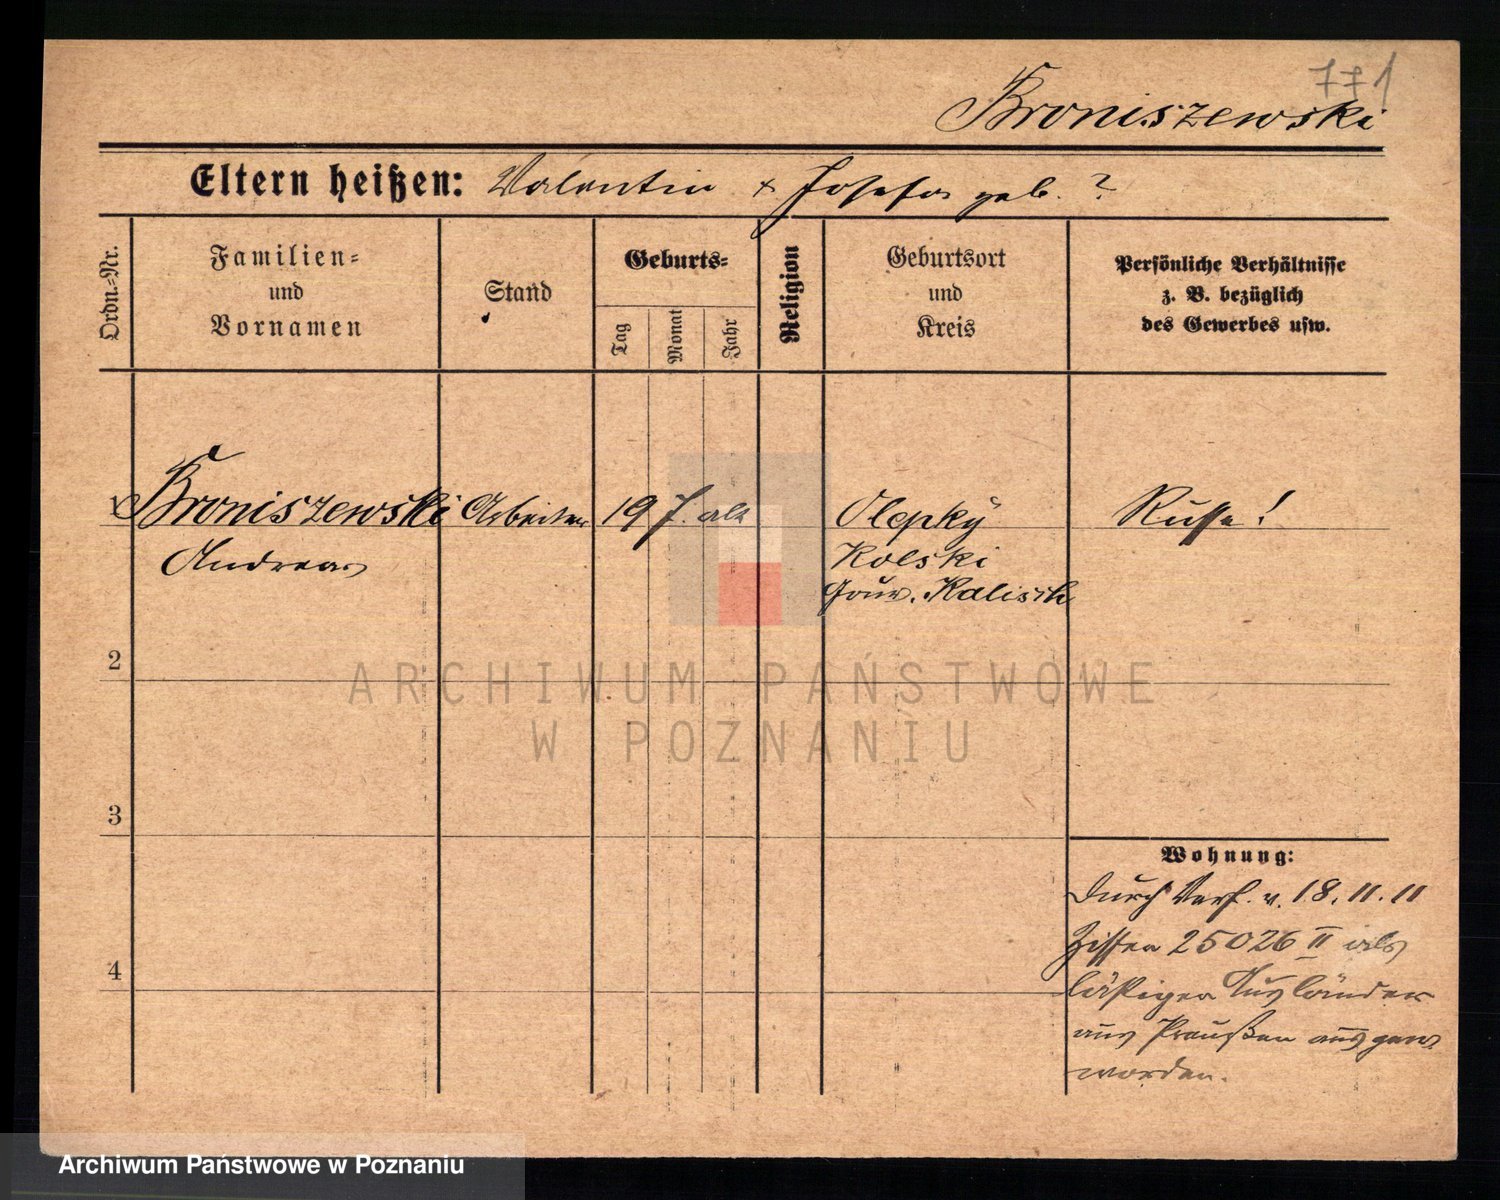 771
Broniszewski
Eltern heißen: Valentin + Josefa geb. ?
Ordn.-Nr.
Familien-
und
Vornamen
Stand
Geburts-
Tag
Monat
Jahr
Religion
Geburtsort
und
Kreis
Persönliche Verhältnisse
z. B. bezüglich
des Gewerbes usw.
1 Broniszewski Arbeiter 19 J. alt Olepky Russe!
Andreas Kolski
Gouv. Kalisch
2
ARCHIWUM PAŃSTWOWE
W POZNANIU
3
Wohnung:
Durch Verf. v. 18.11.11
Ziffer 25026 II als
4
lästiger Ausländer
aus Preußen ausgew.
worden.
Archiwum Państwowe w Poznaniu